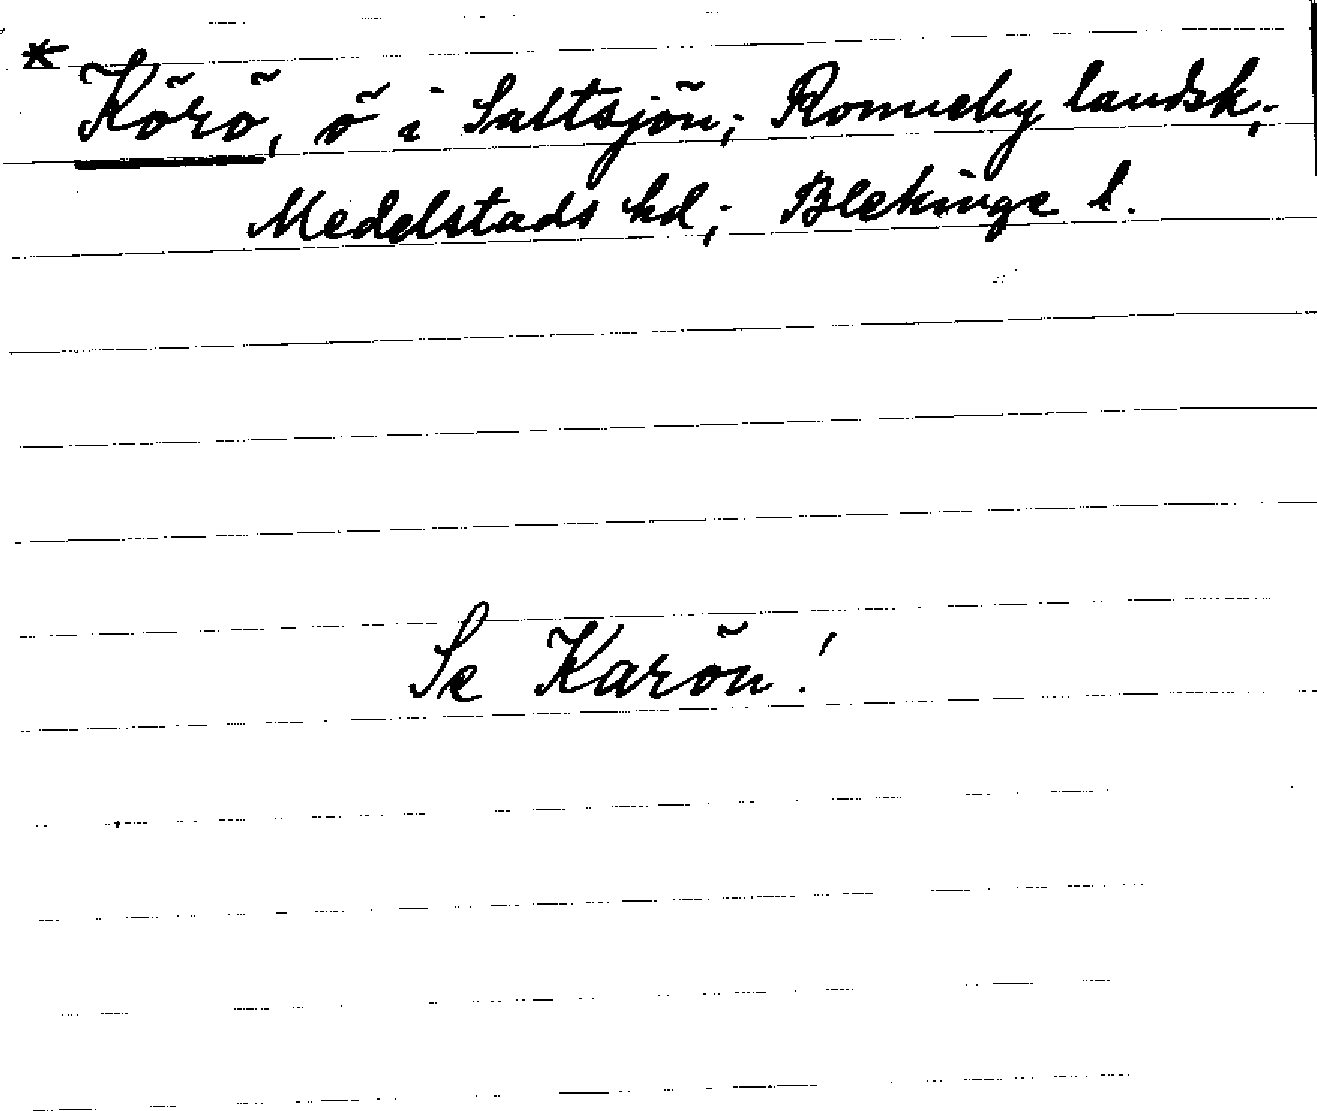 * Körö, ö i Saltsjön; Ronneby landsk.;
Medelstads hd.; Blekinge l.
Se Karön!